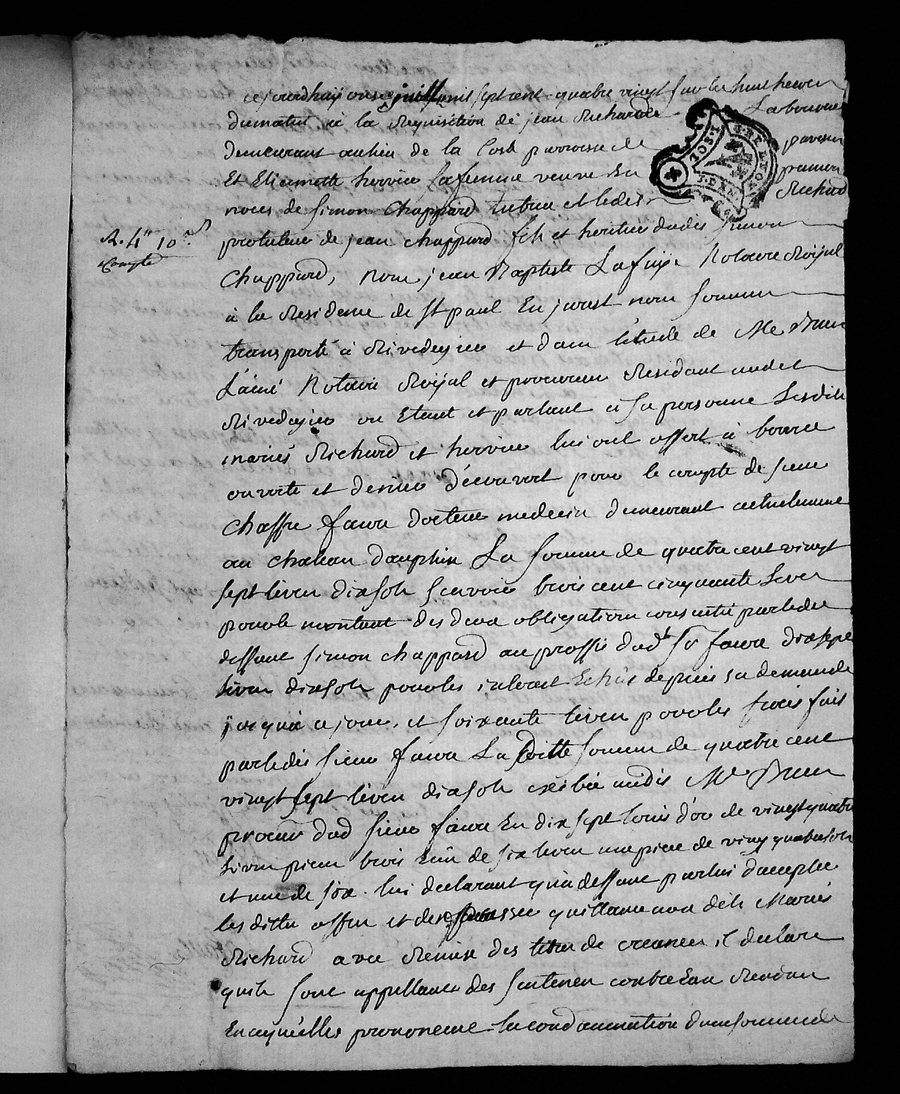 cejourdhuy onze juillet mil sept cent quatre vingt sur les huit heures
du matin à la Requisition de jean Richard Laboureur
demeurant au lieu de la Coste parroisse de
Et Etiennette hervier sa femme veuve En premier
Richard
noces de Simon Chappard tutrice et ledit
protuteur de jean Chappard fils et heritier dudit Simon
R. 4# 10s
Compte
Chappard, Nous jean Baptiste Lafuge Notaire Royal
à la Residence de St paul En jarest nous sommes
transporté à Rivedegier et dans l'étude de Me Brun
L'ainé Notaire Royal et procureur Residant audit
Rivedegier ou Etant et parlant à sa personne Lesdits
mariés Richard et hervier lui ont offert à bource
ouverte et deniers découvert pour le compte de sieur
Chaffre favre docteur medecin demeurant actuelement
au chateau dauphin La somme de quatre cent vingt
sept livres dix sols scavoir trois cent cinquante livres
pour le montant des deux obligations consentie par ledit
deffunt Simon Chappard au proffit dud. Sr favre dix sept
livres dix sols pour les interest Echus depuis sa demande
jusqu'à ce jour, et soixante livres pour les frais fais
par ledit sieur favre La ditte somme de quatre cent
vingt sept livres dix sols exibée audit Me Brun
procureur dud sieur favre En dix sept louis d'or de vingt quatre
livres piece trois Ecus de six livres une piece de vingt quatre sols
et une de six. lui declarant qu'a deffaut par lui d'accepter
les dittes offres et de passer quittance aux dits Mariés
Richard avec Remise des titres de creances, il declare
qu'ils sont appellants des sentences contre Eux Rendues
En ce qu'elles prononcent la condamnation d'une somme de